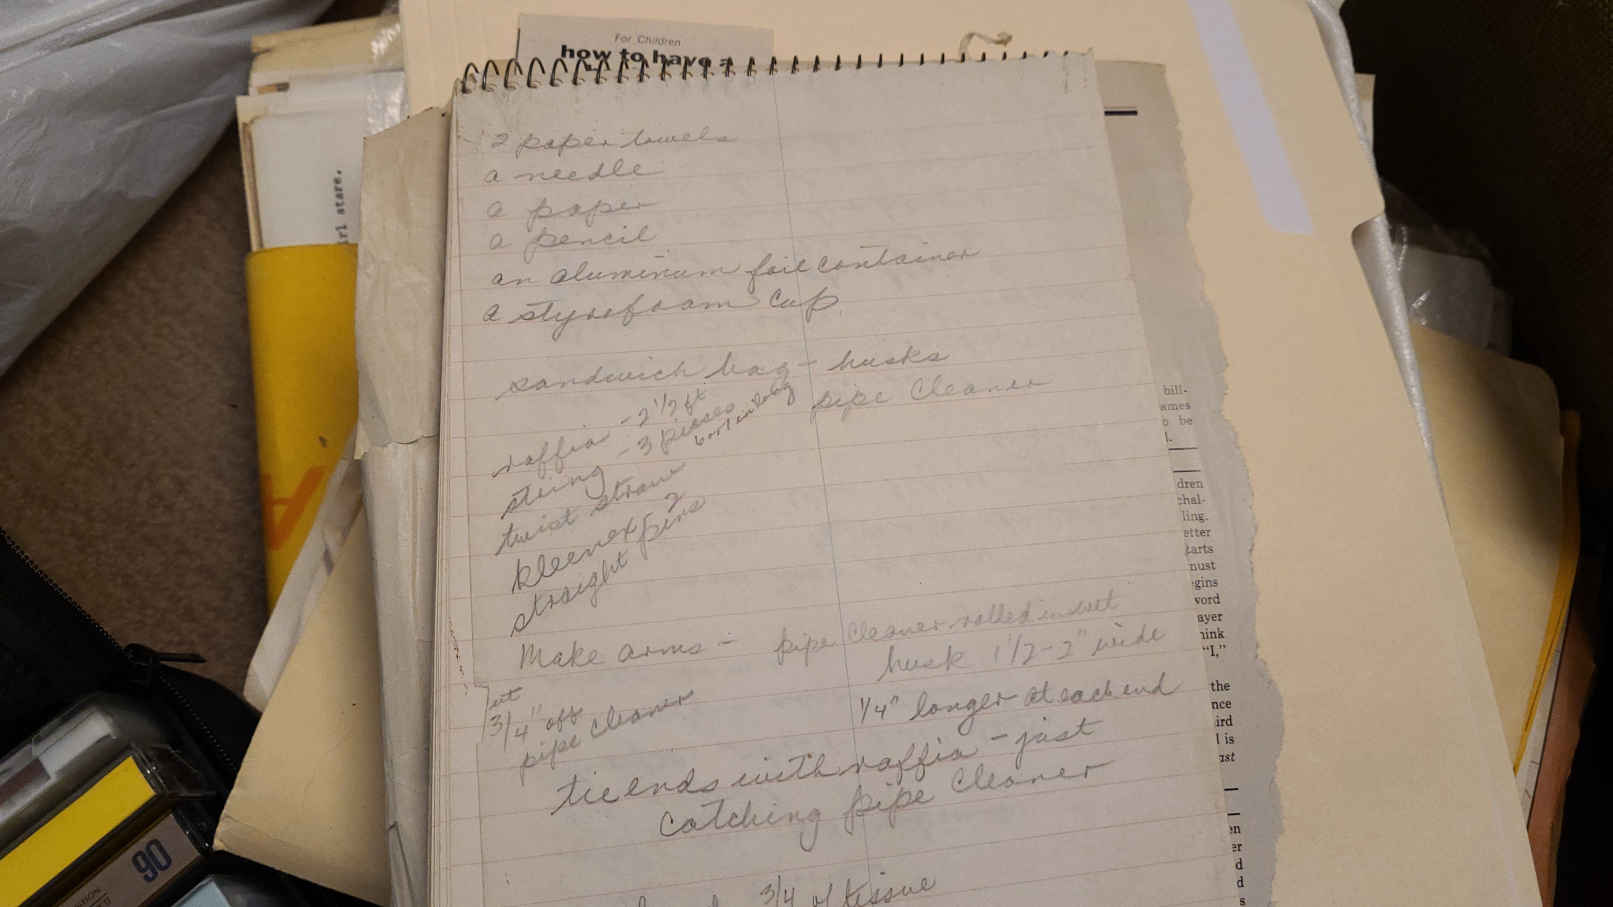 For Children
how to have a
2 paper towels
a needle
a paper
a pencil
an aluminum foil container
a styrofoam cup
sandwich bag - husks
pipe cleaner
raffia - 2 1/2 ft
string - 3 pieces
6 or 1 in bag
twist straw
kleenex - 2
straight pins
Make arms - pipe cleaner rolled in wet
husk 1 1/2 - 2" wide
cut
3/4" off
pipe cleaner
1/4" longer at each end
tie ends with raffia - just
catching pipe cleaner
3/4 of tissue
irl stare.
90
bill-
ames
o be
l.
dren
chal-
ling.
etter
tarts
must
gins
word
ayer
hink
"I,"
the
nce
ird
l is
ast
en
er
d
d
s